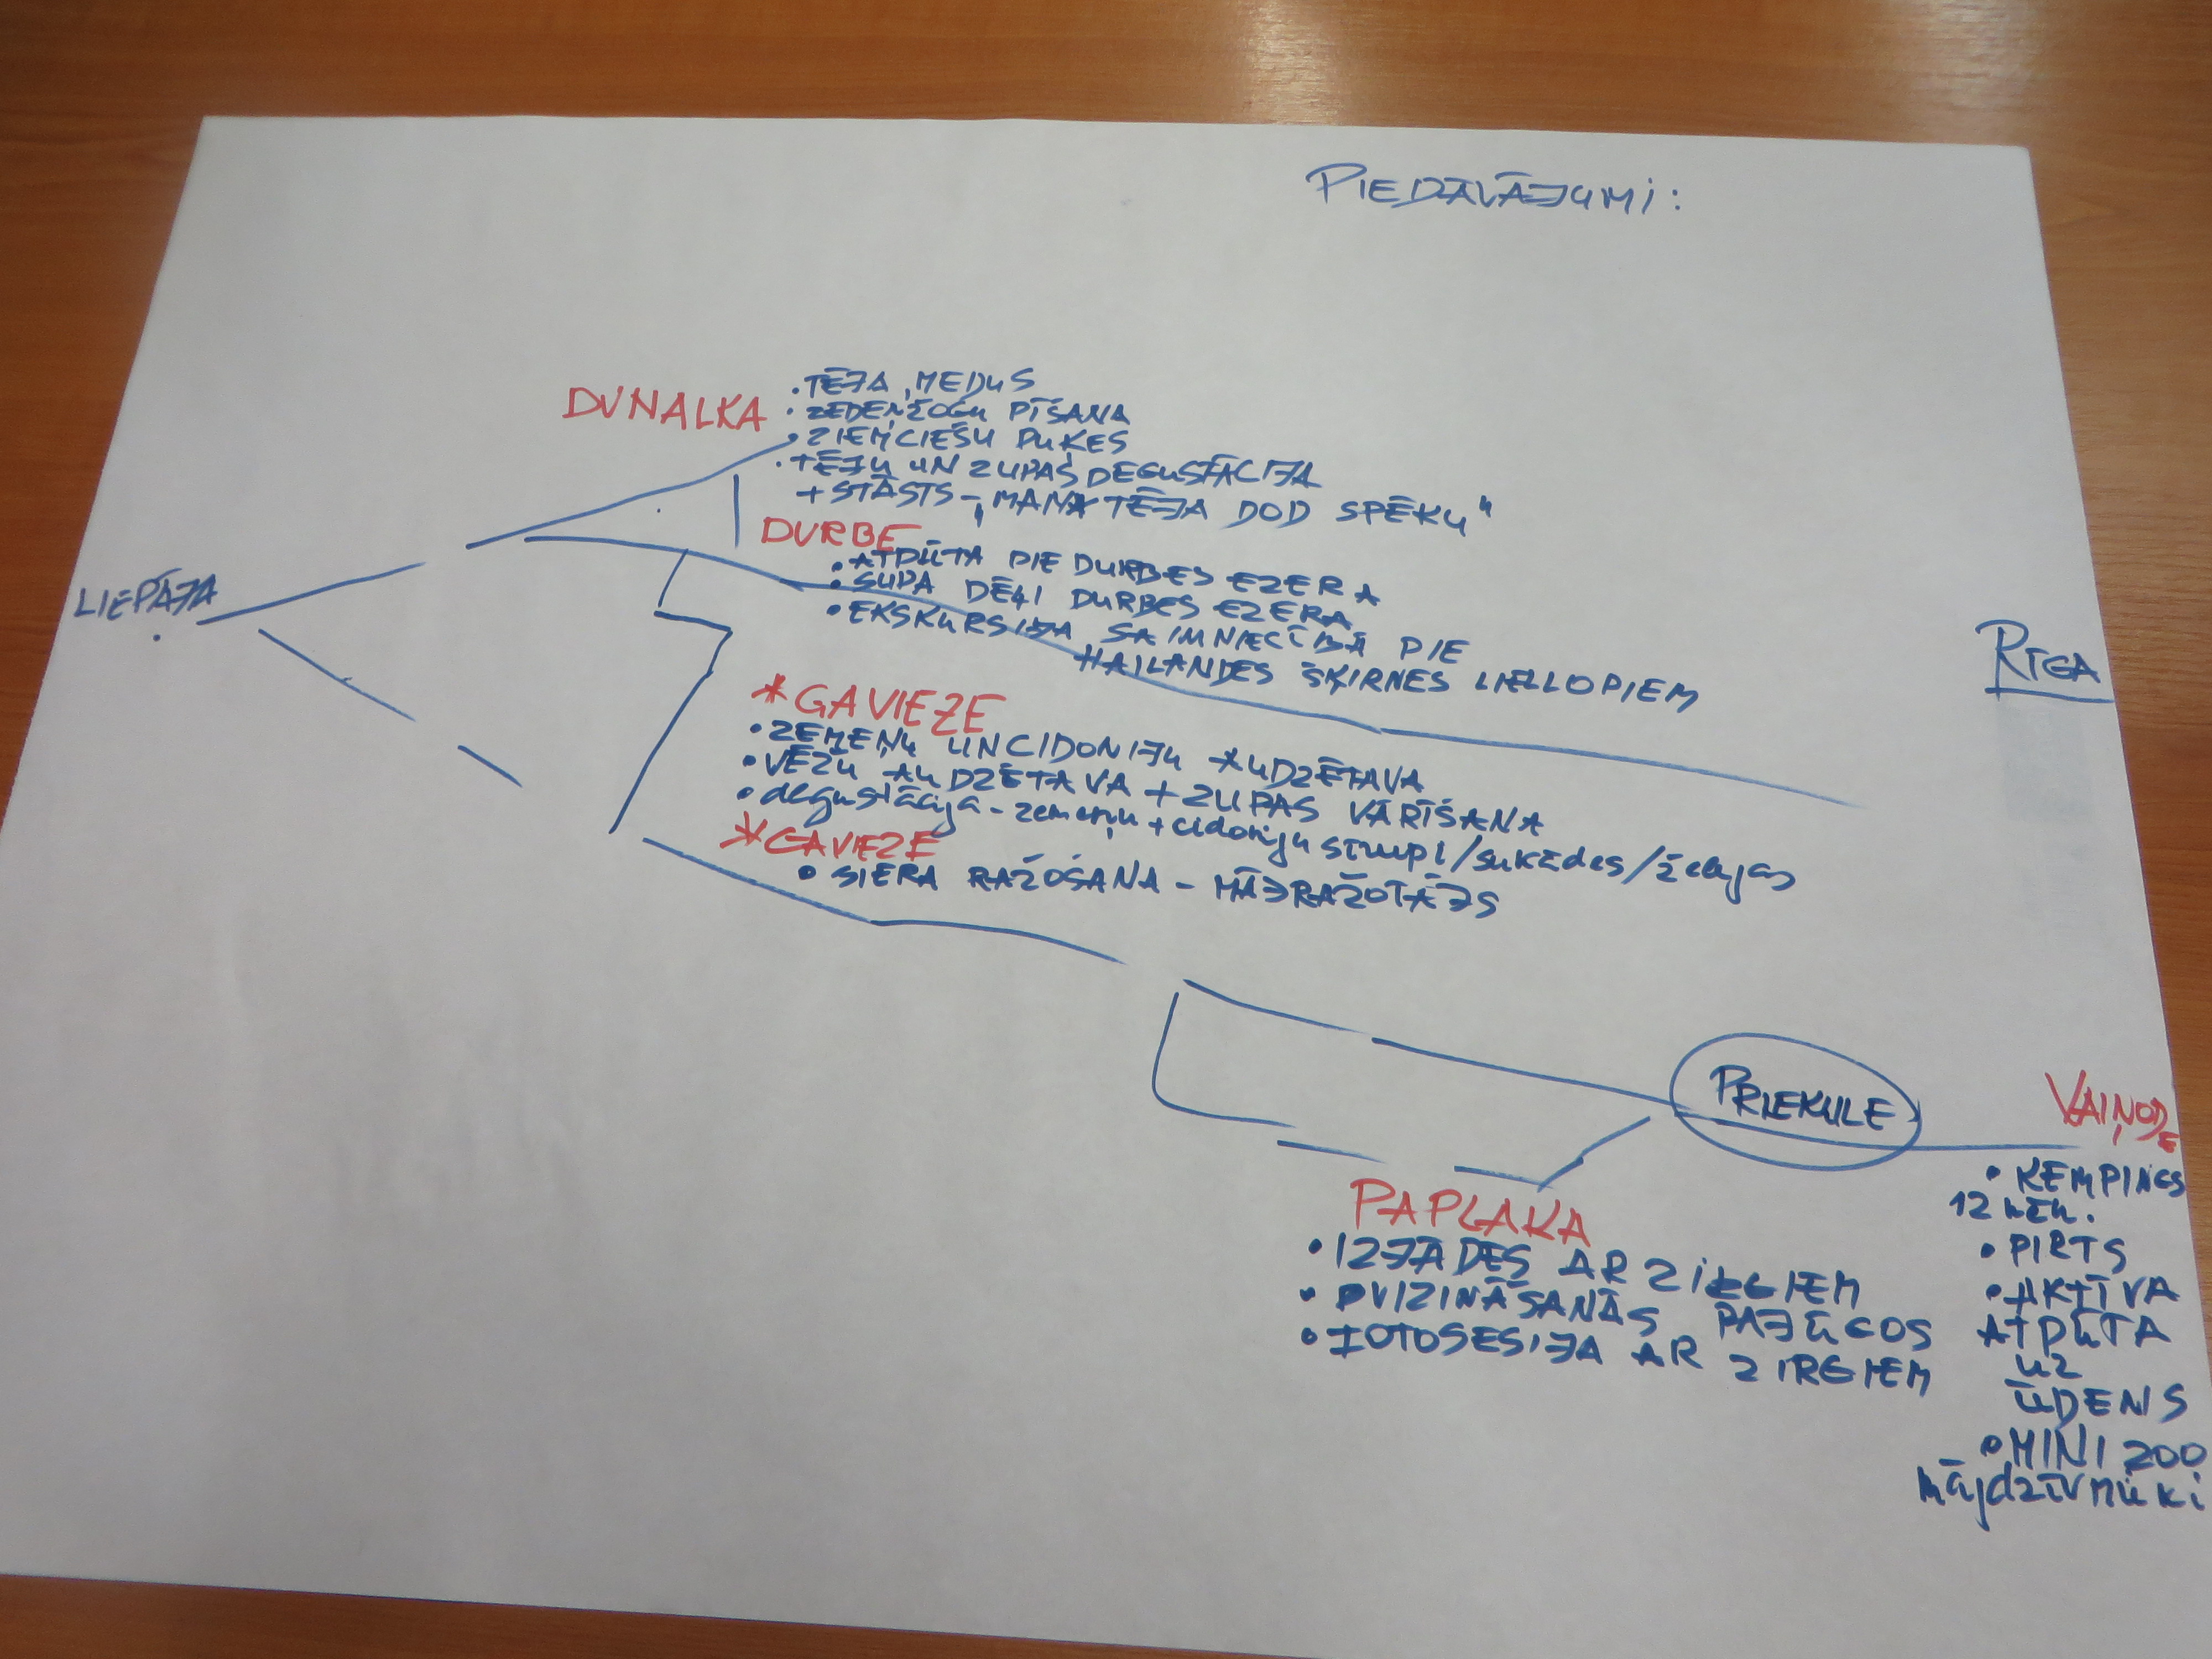 PIEDĀVĀJUMI:
DUNALKA
• TĒJA, MEDUS
• ZEDEŅŽOGU PĪŠANA
• ZIEMCIEŠU PUĶES
• TĒJU UN ZUPAS DEGUSTĀCIJA
+ STĀSTS - „MANA TĒJA DOD SPĒKU"
DURBE
• ATPŪTA PIE DURBES EZERA
• SUPA DĒĻI DURBES EZERA
• EKSKURSIJA SAIMNIECĪBĀ PIE
HAILANDES ŠĶIRNES LIELLOPIEM
LIEPĀJA
RĪGA
*GAVIEZE
• ZEMEŅU UN CIDONIJU AUDZĒTAVA
• VĒŽU AUDZĒTAVA + ZUPAS VĀRĪŠANA
• degustācija - zemeņu + cidoniju sīrupi/sukādes/želejas
*GAVIEZE
• SIERA RAŽOŠANA - MĀJRAŽOTĀJS
PRIEKULE
VAIŅODE
• KEMPINGS
12
• PIRTS
• AKTĪVA
ATPŪTA
UZ
ŪDENS
• MINI ZOO
mājdzīvnieki
PAPLAKA
• IZJĀDES AR ZIRGIEM
• VIZINĀŠANĀS PAJŪGOS
• FOTOSESIJA AR ZIRGIEM